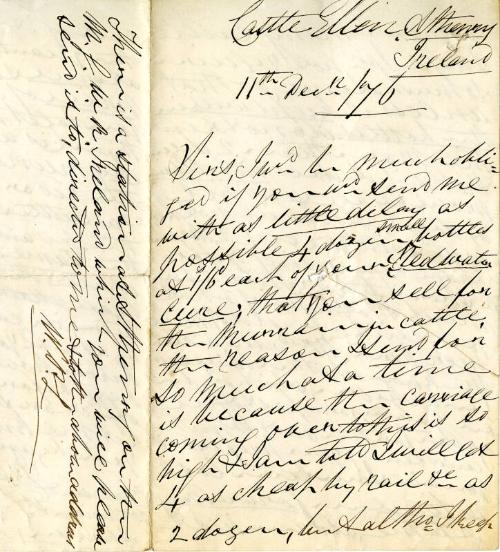 Castle Ellen, Athenry
Ireland
11th Decr /76
Sirs, I wd be much obli-
ged if you wd send me
with as little delay as
possible 4 dozen small bottles
at 1/6 each of your Red water
cure, that you sell for
the Murrain in cattle,
the reason I send for
so much at a time
is because the carriage
coming over to this is so
high & am told I will get
4 as cheap by rail &c as
2 dozen, but altho' I keep
There is a station at Athenry on the
M. G. W. R. Ireland which you will please
send it to, directed to me & at the above address